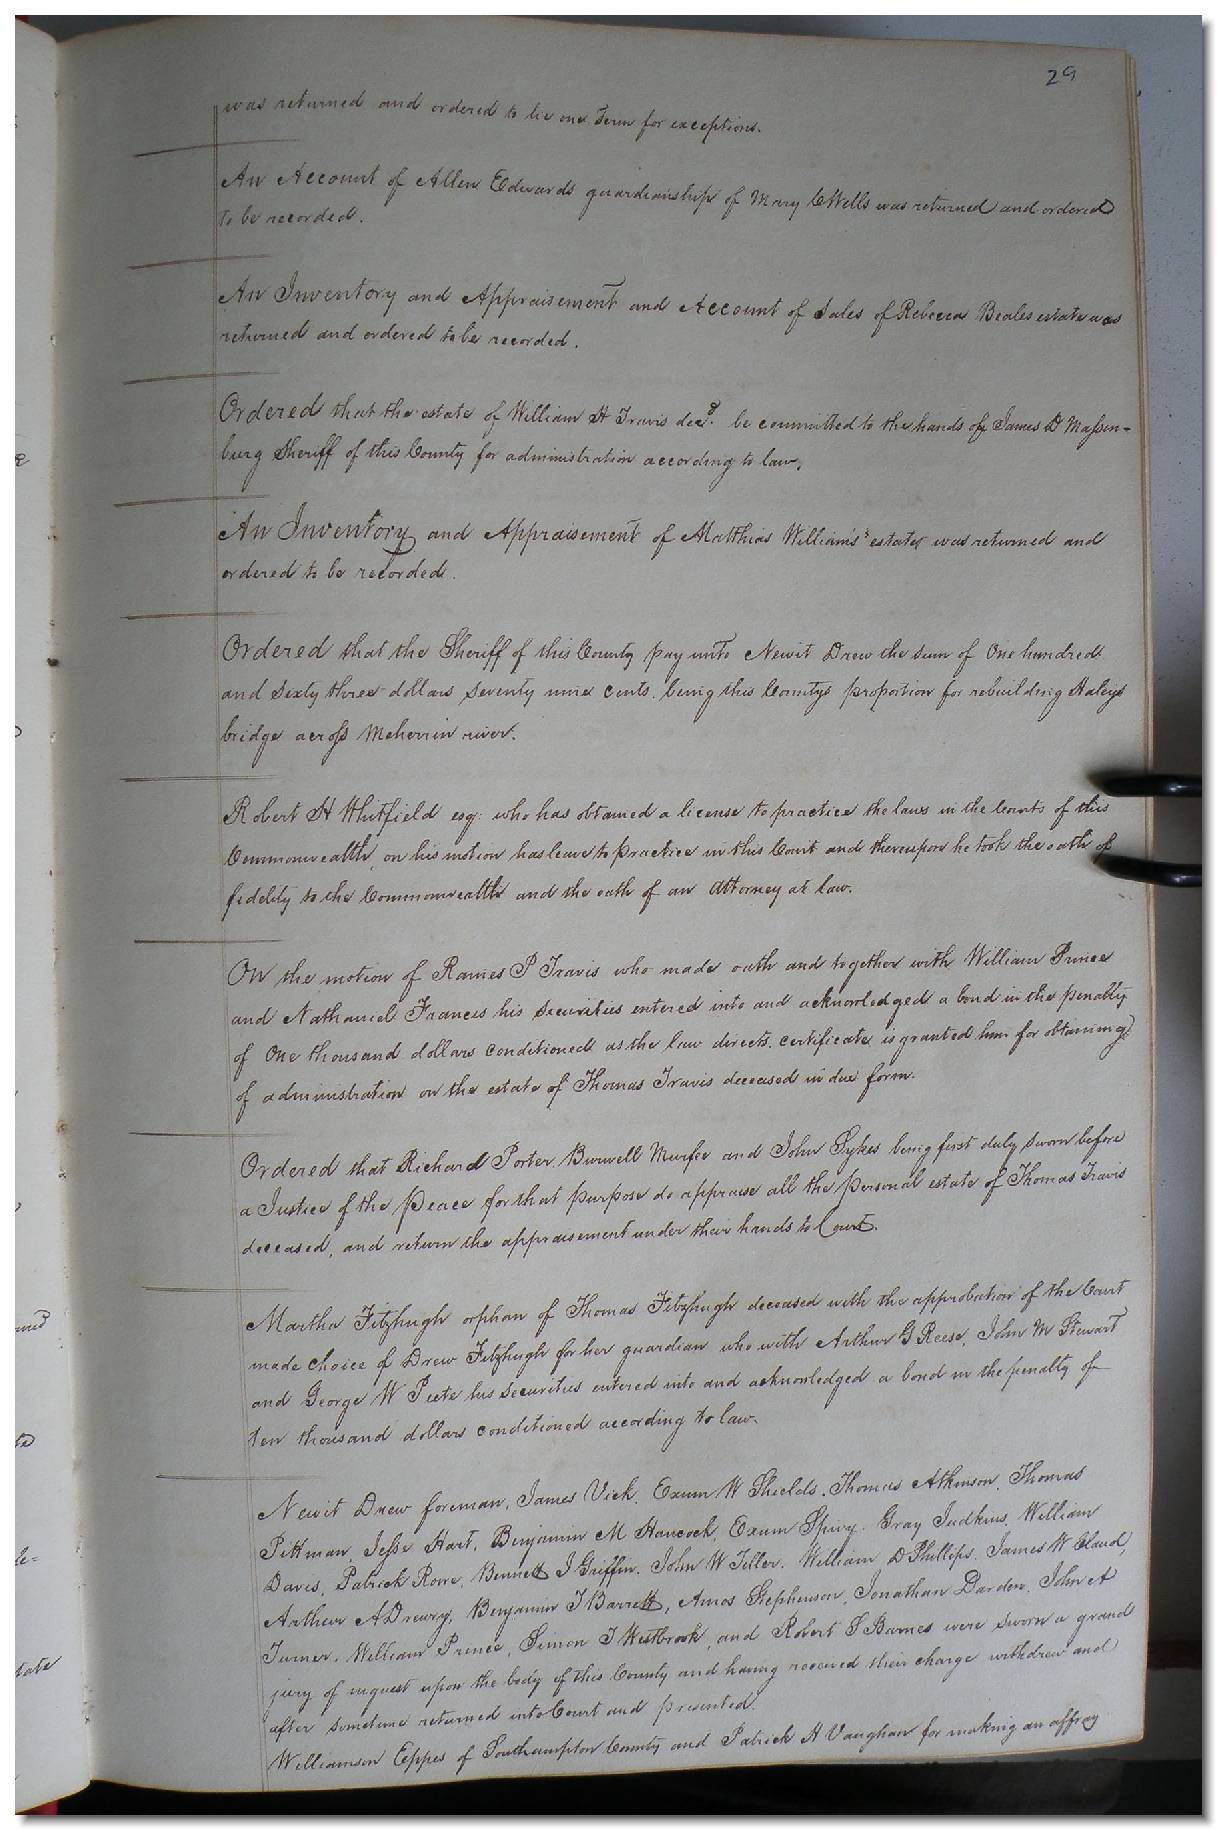 29
was returned and ordered to lie one Term for exceptions.
An Account of Allen Edwards guardianship of Mary C Wells was returned and ordered
to be recorded.
An Inventory and Appraisement and Account of Sales of Rebecca Beales estate was
returned and ordered to be recorded.
Ordered that the estate of William H Travis decd. be committed to the hands of James D Massen-
burg Sheriff of this County for administration according to law.
An Inventory and Appraisement of Matthias Williams's estate was returned and
ordered to be recorded.
Ordered that the Sheriff of this County pay unto Newit Drew the sum of One hundred
and sixty three dollars seventy nine cents. being this Countys proportion for rebuilding Haleys
bridge across Meherrin river.
Robert H Whitfield esq: who has obtained a license to practice the laws in the Courts of this
Commonwealth, on his motion has leave to practice in this Court and thereupon he took the oath of
fidelity to the Commonwealth and the oath of an Attorney at law.
On the motion of Rames P Travis who made oath and together with William Prince
and Nathaniel Francis his securities entered into and acknowledged a bond in the penalty
of One thousand dollars conditioned as the law directs. certificate is granted him for obtaining
of administration on the estate of Thomas Travis deceased in due form.
Ordered that Richard Porter, Burwell Murfee and John Sykes being first duly sworn before
a Justice of the Peace for that purpose do appraise all the personal estate of Thomas Travis
deceased, and return the appraisement under their hands to Court.
Martha Fitzhugh orphan of Thomas Fitzhugh deceased with the approbation of the Court
made choice of Drew Fitzhugh for her guardian who with Arthur G Reese, John M Stewart
and George W Peete his securities entered into and acknowledged a bond in the penalty of
ten thousand dollars conditioned according to law.
Newit Drew foreman, James Vick, Exum W Shields, Thomas Atkinson, Thomas
Pittman, Jesse Hart, Benjamin M Hancock, Exum Spivy, Gray Judkins, William
Davis, Patrick Rowe, Bennett J Griffin, John W Teller, William D Phillips, James W Claud,
Arthur A Drewry, Benjamin T Barrett, Amos Stephenson, Jonathan Darden, John A
Turner, William Prince, Simon T Westbrook, and Robert S Barnes were sworn a grand
jury of inquest upon the body of this County and having received their charge withdrew and
after sometime returned into Court and presented.
Williamson Eppes of Southampton County and Patrick H Vaughan for making an affray